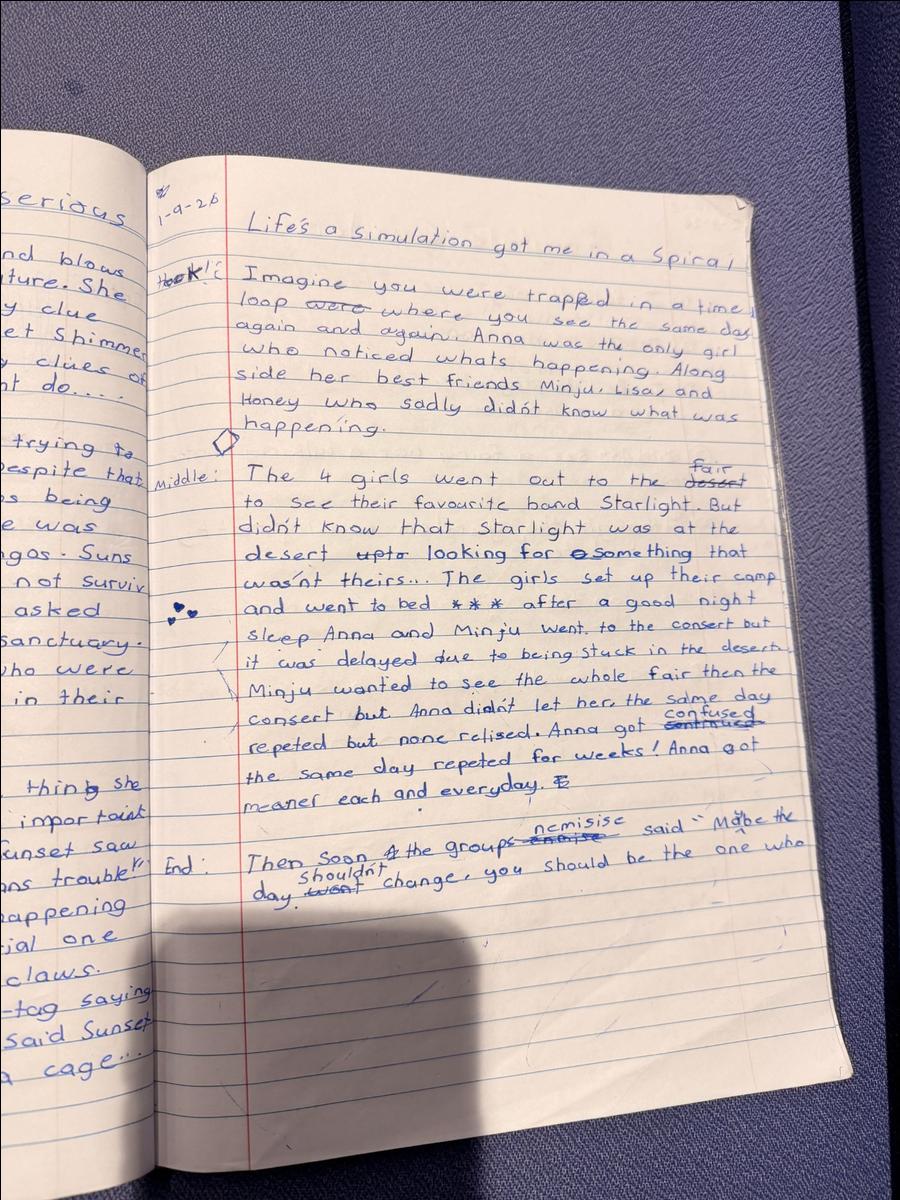 serious
nd blows
ture. She
y clue
et Shimmer
y clues of
nt do....
trying to
Despite that
os being
e was
ngos. Suns
not surviv
asked
sanctuary.
who were
in their
thing she
important
Sunset saw
ns trouble"
happening
ial one
claws.
-tag saying
said Sunset
a cage...
1-9-26
Life's a simulation got me in a Spiral
Hook!:
Imagine you were trapped in a time
loop were where you see the same day
again and again. Anna was the only girl
who noticed whats happening. Along
side her best friends Minju, Lisa, and
Honey who sadly didn't know what was
happening.
Middle:
The 4 girls went out to the desert fair
to see their favourite band Starlight. But
didn't know that Starlight was at the
desert upto looking for something that
was'nt theirs... The girls set up their camp
and went to bed *** after a good night
sleep Anna and Minju went to the consert but
it was delayed due to being stuck in the desert.
Minju wanted to see the whole fair then the
consert but Anna didn't let her, the same day
repeted but none relised. Anna got continued confused
the same day repeted for weeks! Anna got
meaner each and everyday.
End:
Then soon the groups nemisise said "Maybe the
day wont shouldn't change, you should be the one who